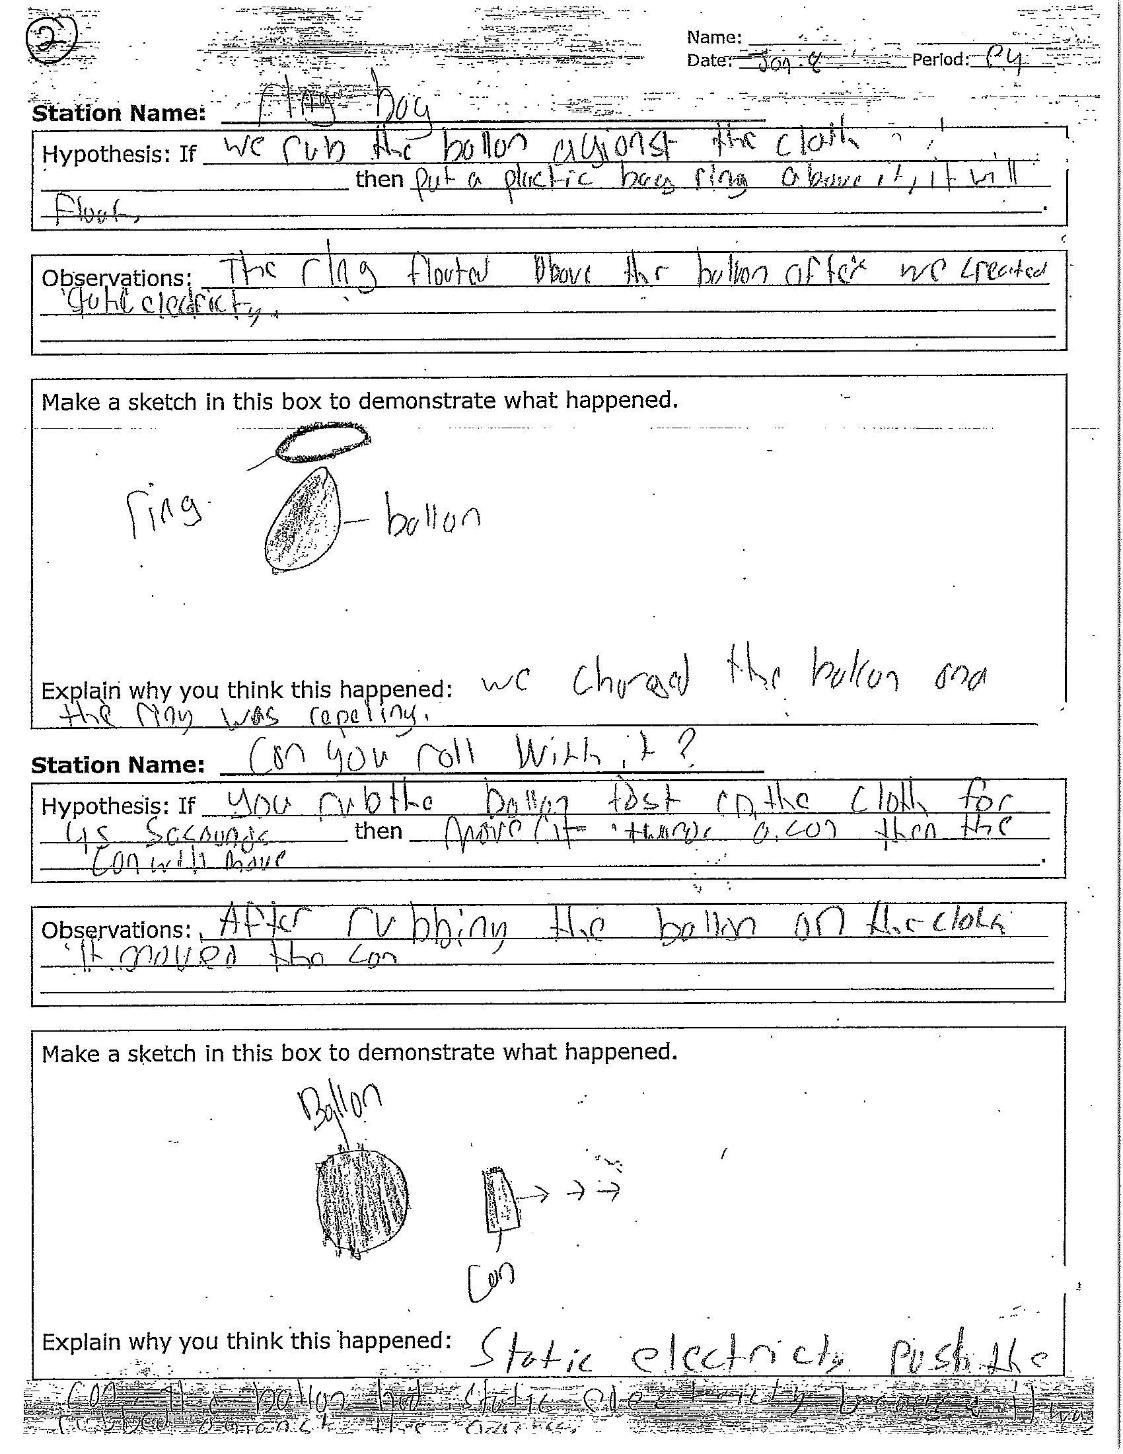 2
Name:
Date: Jan. 8 Period: P4
Station Name: Fling bag
Hypothesis: If we rub the ballon agionst the cloth
then put a plactic bag ring above it, it will
float.
Observations: The ring floated above the ballon after we created
electricty.
Make a sketch in this box to demonstrate what happened.
ring
ballon
Explain why you think this happened: we charged the ballon and
the ring was repeling.
Station Name: Can you roll with it?
Hypothesis: If you rub the ballon fast on the cloth for
45 then move it a can then the
can will move
Observations: After rubbing the ballon on the cloth
it moved the can
Make a sketch in this box to demonstrate what happened.
Ballon
Can
Explain why you think this happened: Static electricty push the
can. The ballon had static electricity because it was
rubbed against the